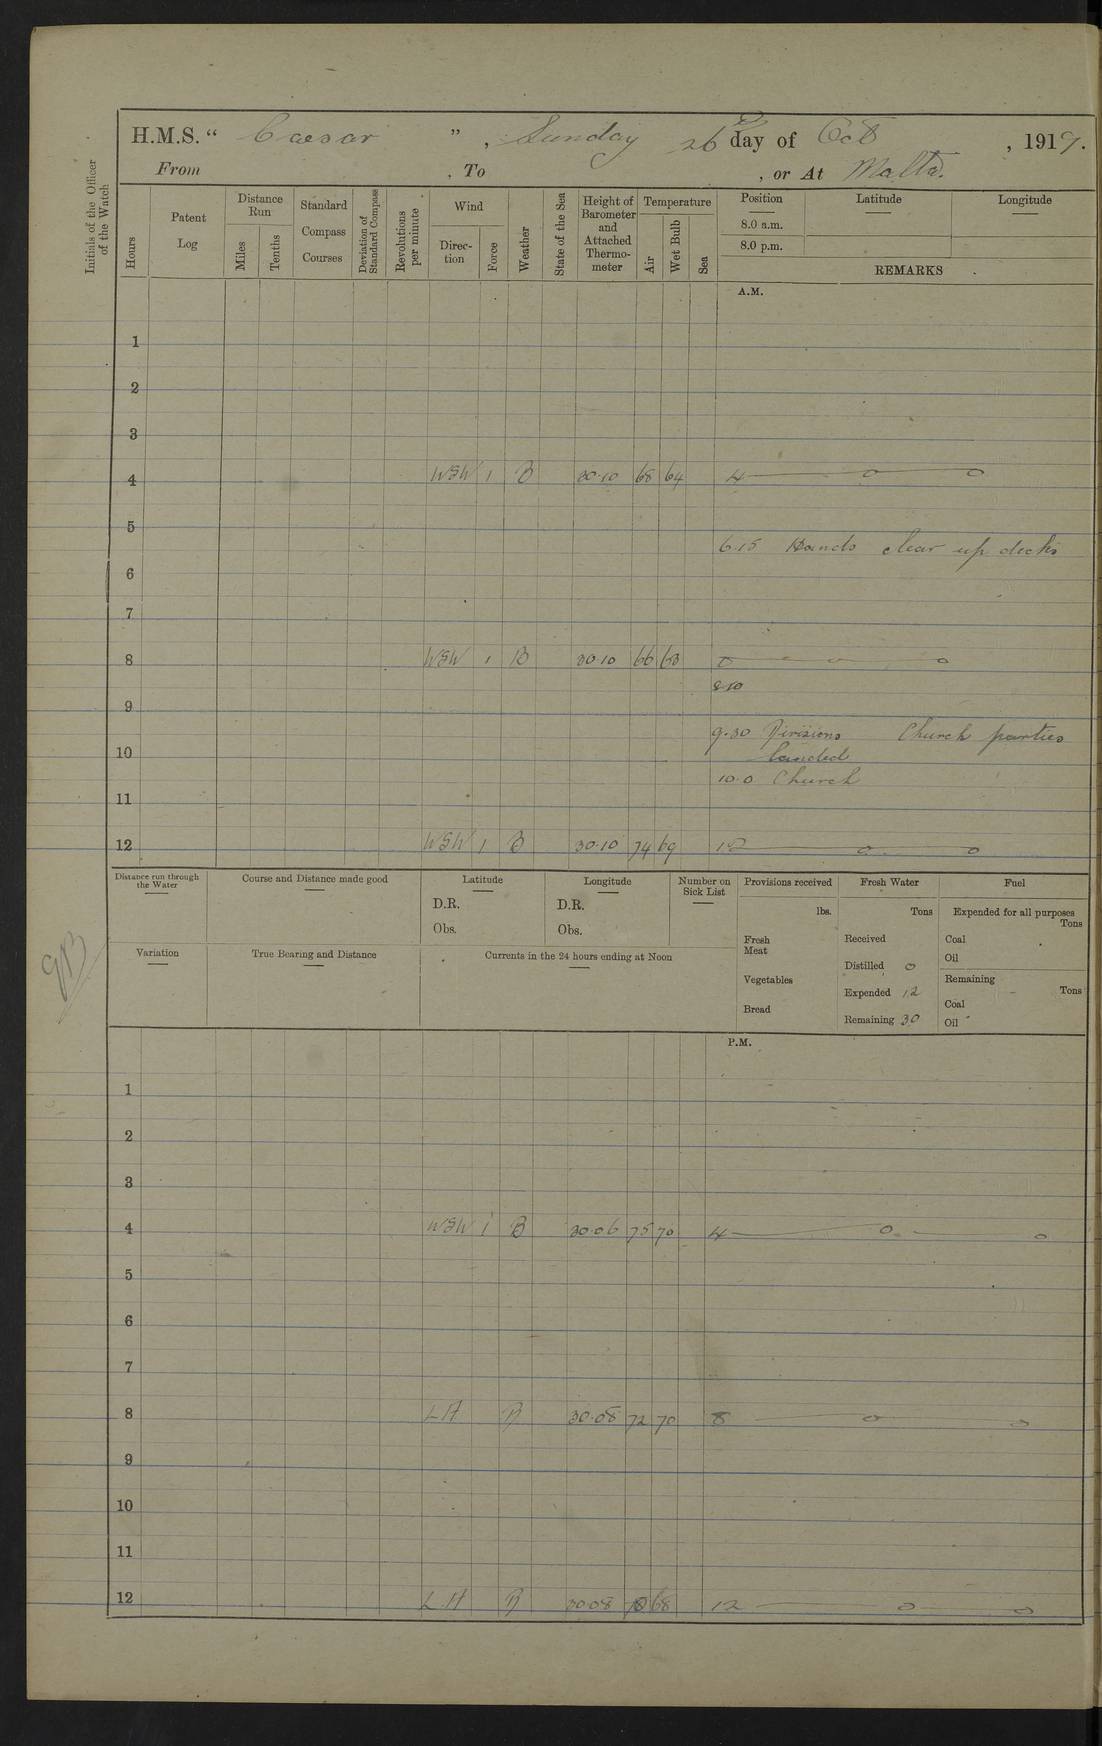 H.M.S. " Caesar ", Sunday 26th day of Oct, 1919.
From , To , or At Malta.
Initials of the Officer of the Watch
Hours
Patent Log
Distance Run
Miles
Tenths
Standard Compass Courses
Deviation of Standard Compass
Revolutions per minute
Wind
Direction
Force
Weather
State of the Sea
Height of Barometer and Attached Thermometer
Temperature
Air
Wet Bulb
Sea
Position Latitude Longitude
8.0 a.m.
8.0 p.m.
REMARKS
A.M.
1
2
3
4 WSW 1 B 30.10 68 64 4 — o — o
5
6.15 Hands clear up decks
6
7
8 WSW 1 B 30.10 66 63 8 — o — o
8.10
9
9.30 Divisions Church parties
10 landed
10.0 Church
11
12 WSW 1 B 30.10 74 69 12 — o — o
Distance run through the Water
Course and Distance made good
Latitude
D.R.
Obs.
Longitude
D.R.
Obs.
Number on Sick List
Provisions received
lbs.
Fresh Meat
Vegetables
Bread
Fresh Water
Tons
Received
Distilled 0
Expended 12
Remaining 30
Fuel
Expended for all purposes
Tons
Coal
Oil
Remaining
Tons
Coal
Oil
Variation
True Bearing and Distance
Currents in the 24 hours ending at Noon
P.M.
1
2
3
4 WSW 1 B 30.06 75 70 4 — o — o
5
6
7
8 LA B 30.08 72 70 8 — o — o
9
10
11
12 LA B 30.08 70 68 12 — o — o